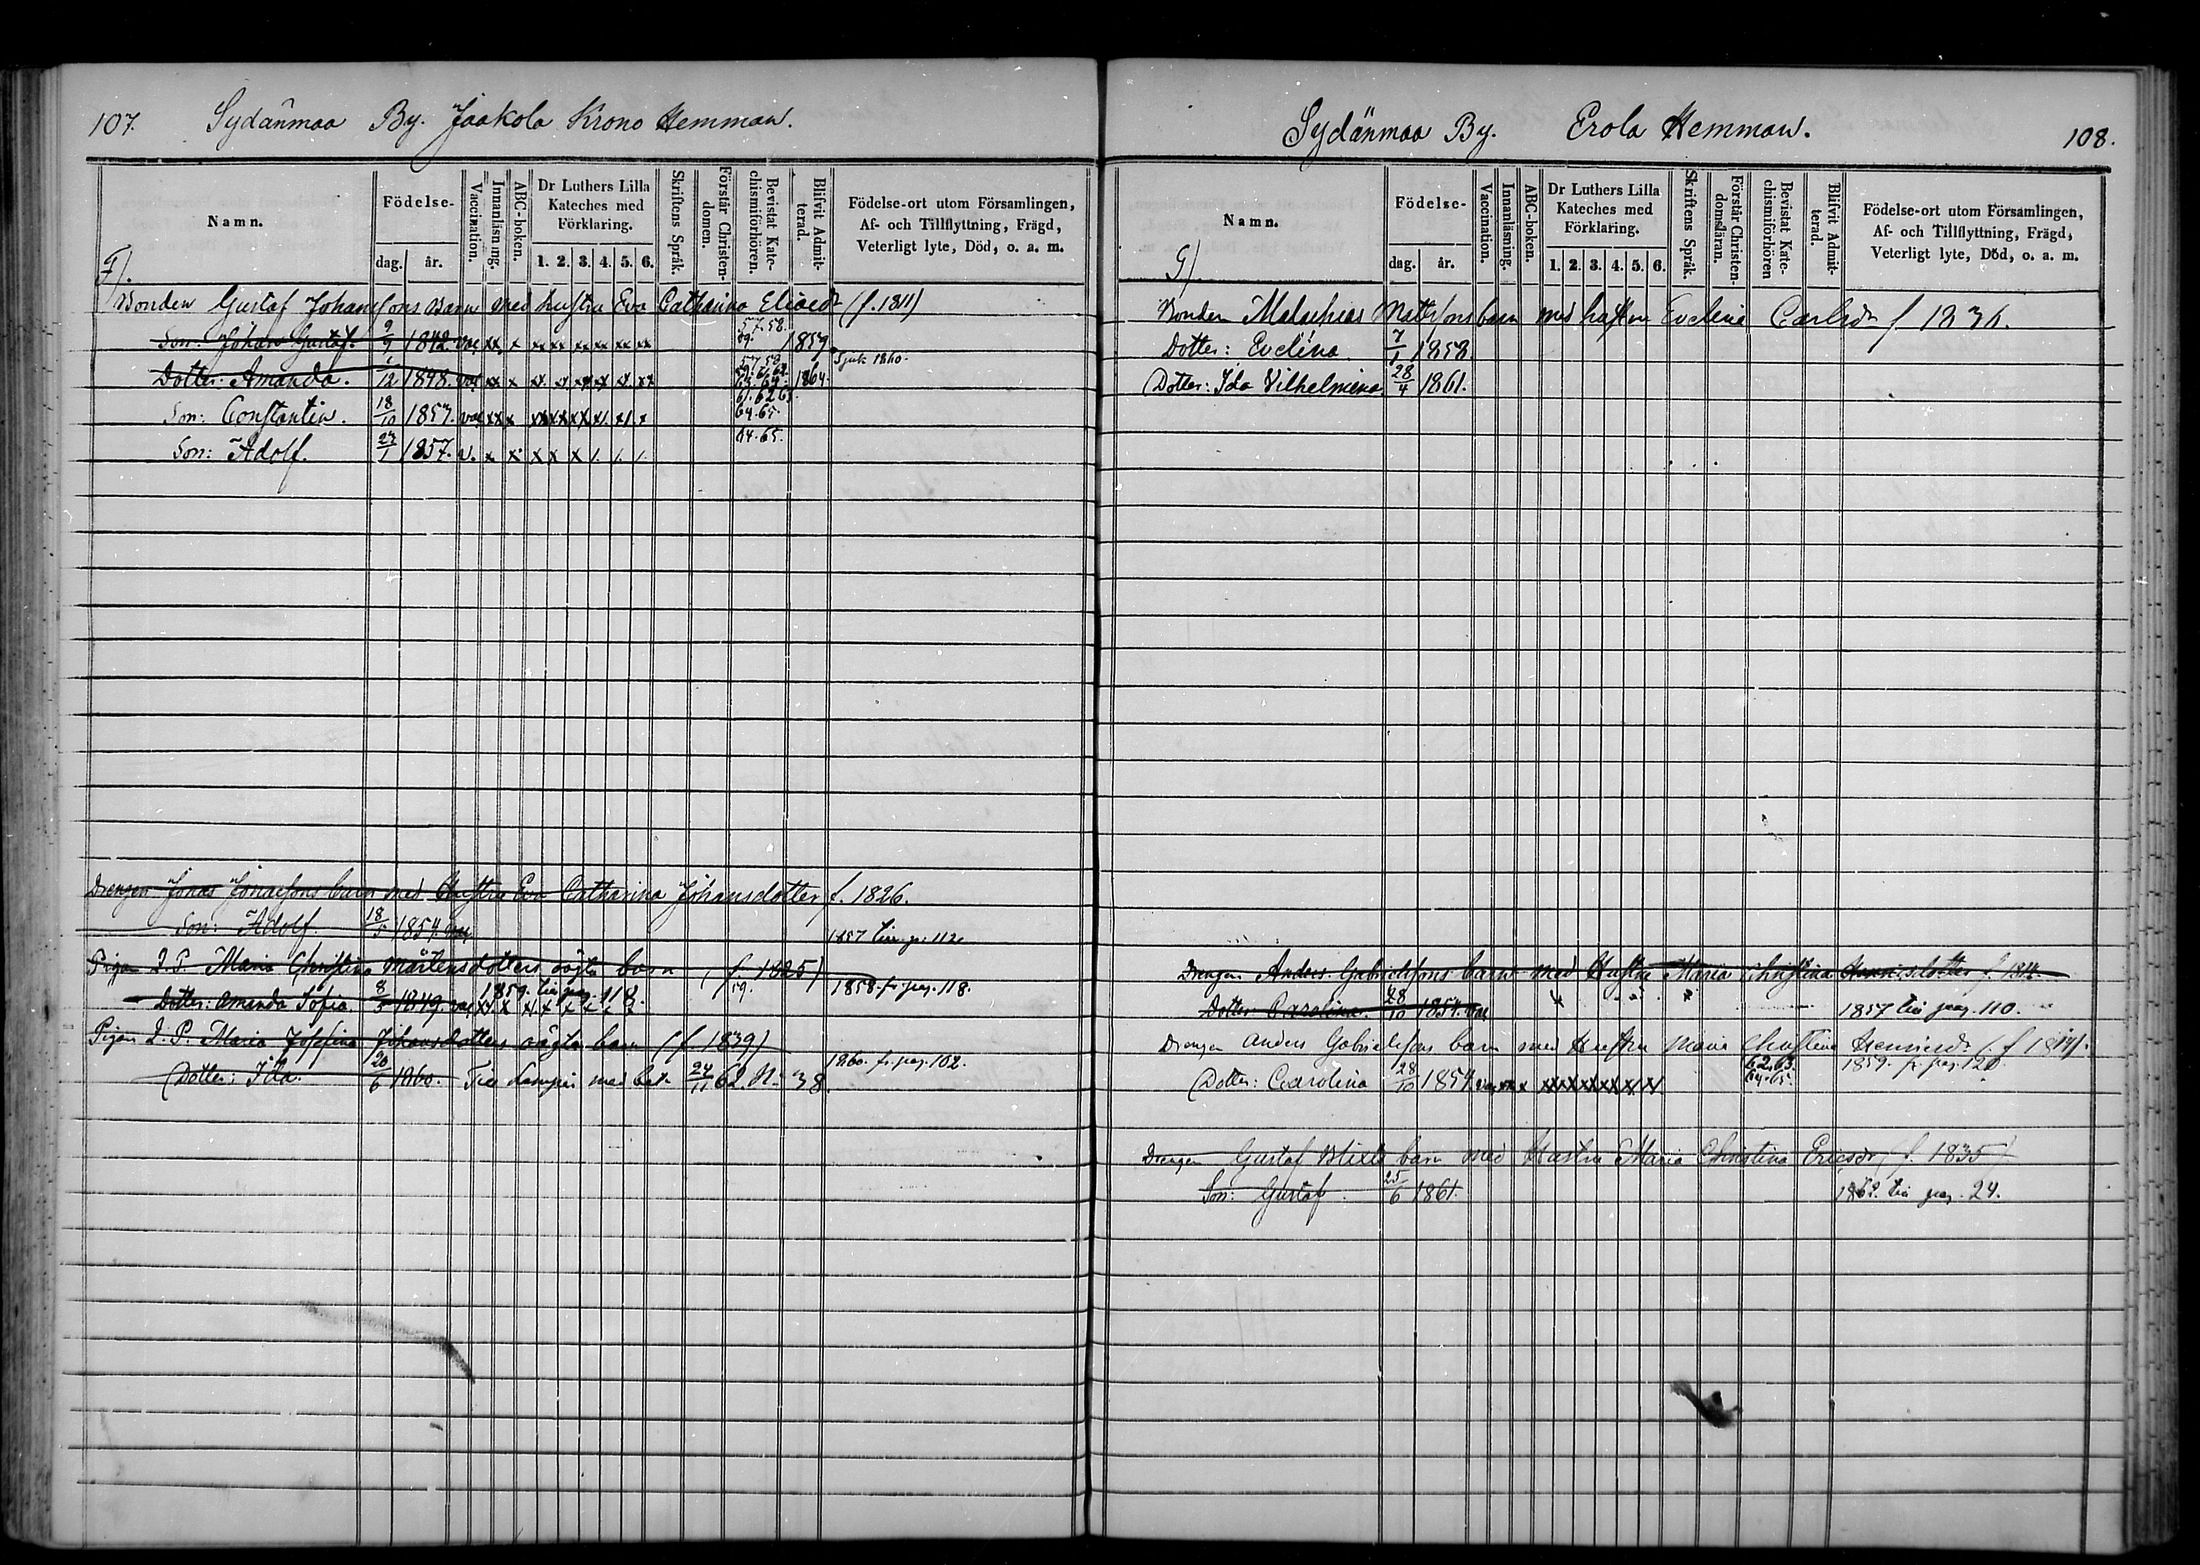 107. Sydänmaa By. Jaakola Krono Hemman.
Namn. Födelse- dag. år. Vaccination. Innanläsning. ABC-boken. Dr Luthers Lilla Kateches med Förklaring. 1. 2. 3. 4. 5. 6. Skriftens Språk. Förstår Christendomen. Bevistat Katechismiförhören. Blifvit Admitterad. Födelse-ort utom Församlingen, Af- och Tillflyttning, Frägd, Veterligt lyte, Död, o. a. m.
F).
Bonden Gustaf Johanssons Barn med hustru Eva Catharina Eliædr (f. 1811)
Son: Johan Gustaf. 9/9 1842. vac. xx x xx xx xx xx xx xx 57. 58. 59. 1859.
Dotter: Amanda. 1/12 1848. vac. 1864. 1860.
Son: Constantin. 18/10 1853. vac. 61. 62 63. 64. 65.
Son: Adolf. 27/1 1857. v. x. x. x x x /. /. /. 64. 65.
Drengen Jonas Jonassons barn med Hustru Eva Catharina Johansdotter f. 1826.
Son: Adolf. 18/5 1854. vac. 1857 till p. 112
Pigan I. P. Maria Christina Mårtensdotters oägta barn (f. 1825)
Dotter: Amanda Sofia. 8/3 1849. vac. 1859. till pag. 118. 59. 1858. fr. pag. 118.
Pigan I. P. Maria Josefina Johansdotters oägta barn (f 1839)
Dotter: Ida. 20/6 1860. Till Lampis med bet. 24/11 62 N. 38. 1860. fr. pag. 102.
Sydänmaa By. Erola Hemman. 108.
Namn. Födelse- dag. år. Vaccination. Innanläsning. ABC-boken. Dr Luthers Lilla Kateches med Förklaring. 1. 2. 3. 4. 5. 6. Skriftens Språk. Förstår Christendomsläran. Bevistat Katechismiförhören Blifvit Admitterad. Födelse-ort utom Församlingen, Af- och Tillflyttning, Frägd, Veterligt lyte, Död, o. a. m.
G)
Bonden Malachias Mattssons barn med hustru Evelina Carlsdr f 1836.
Dotter: Evelina. 7/1 1858.
Dotter: Ida Vilhelmina. 28/4 1861.
Drengen Anders Gabrielssons barn med Hustru Maria Christina f. 1814.
Dotter Carolina. 28/10 1854. vac. 1857 till pag. 110.
Drengen Anders Gabrielssons barn med Hustru Maria Christina
Dotter: Carolina 28/10 1854. vac. xx x 62. 63. 64. 65. 1859. fr. pag. 120.
Drengen Gustaf Blixts barn med Hustru Maria Christina Ericsdr (f. 1835)
Son: Gustaf. 25/6 1861. 1862. till pag. 24.